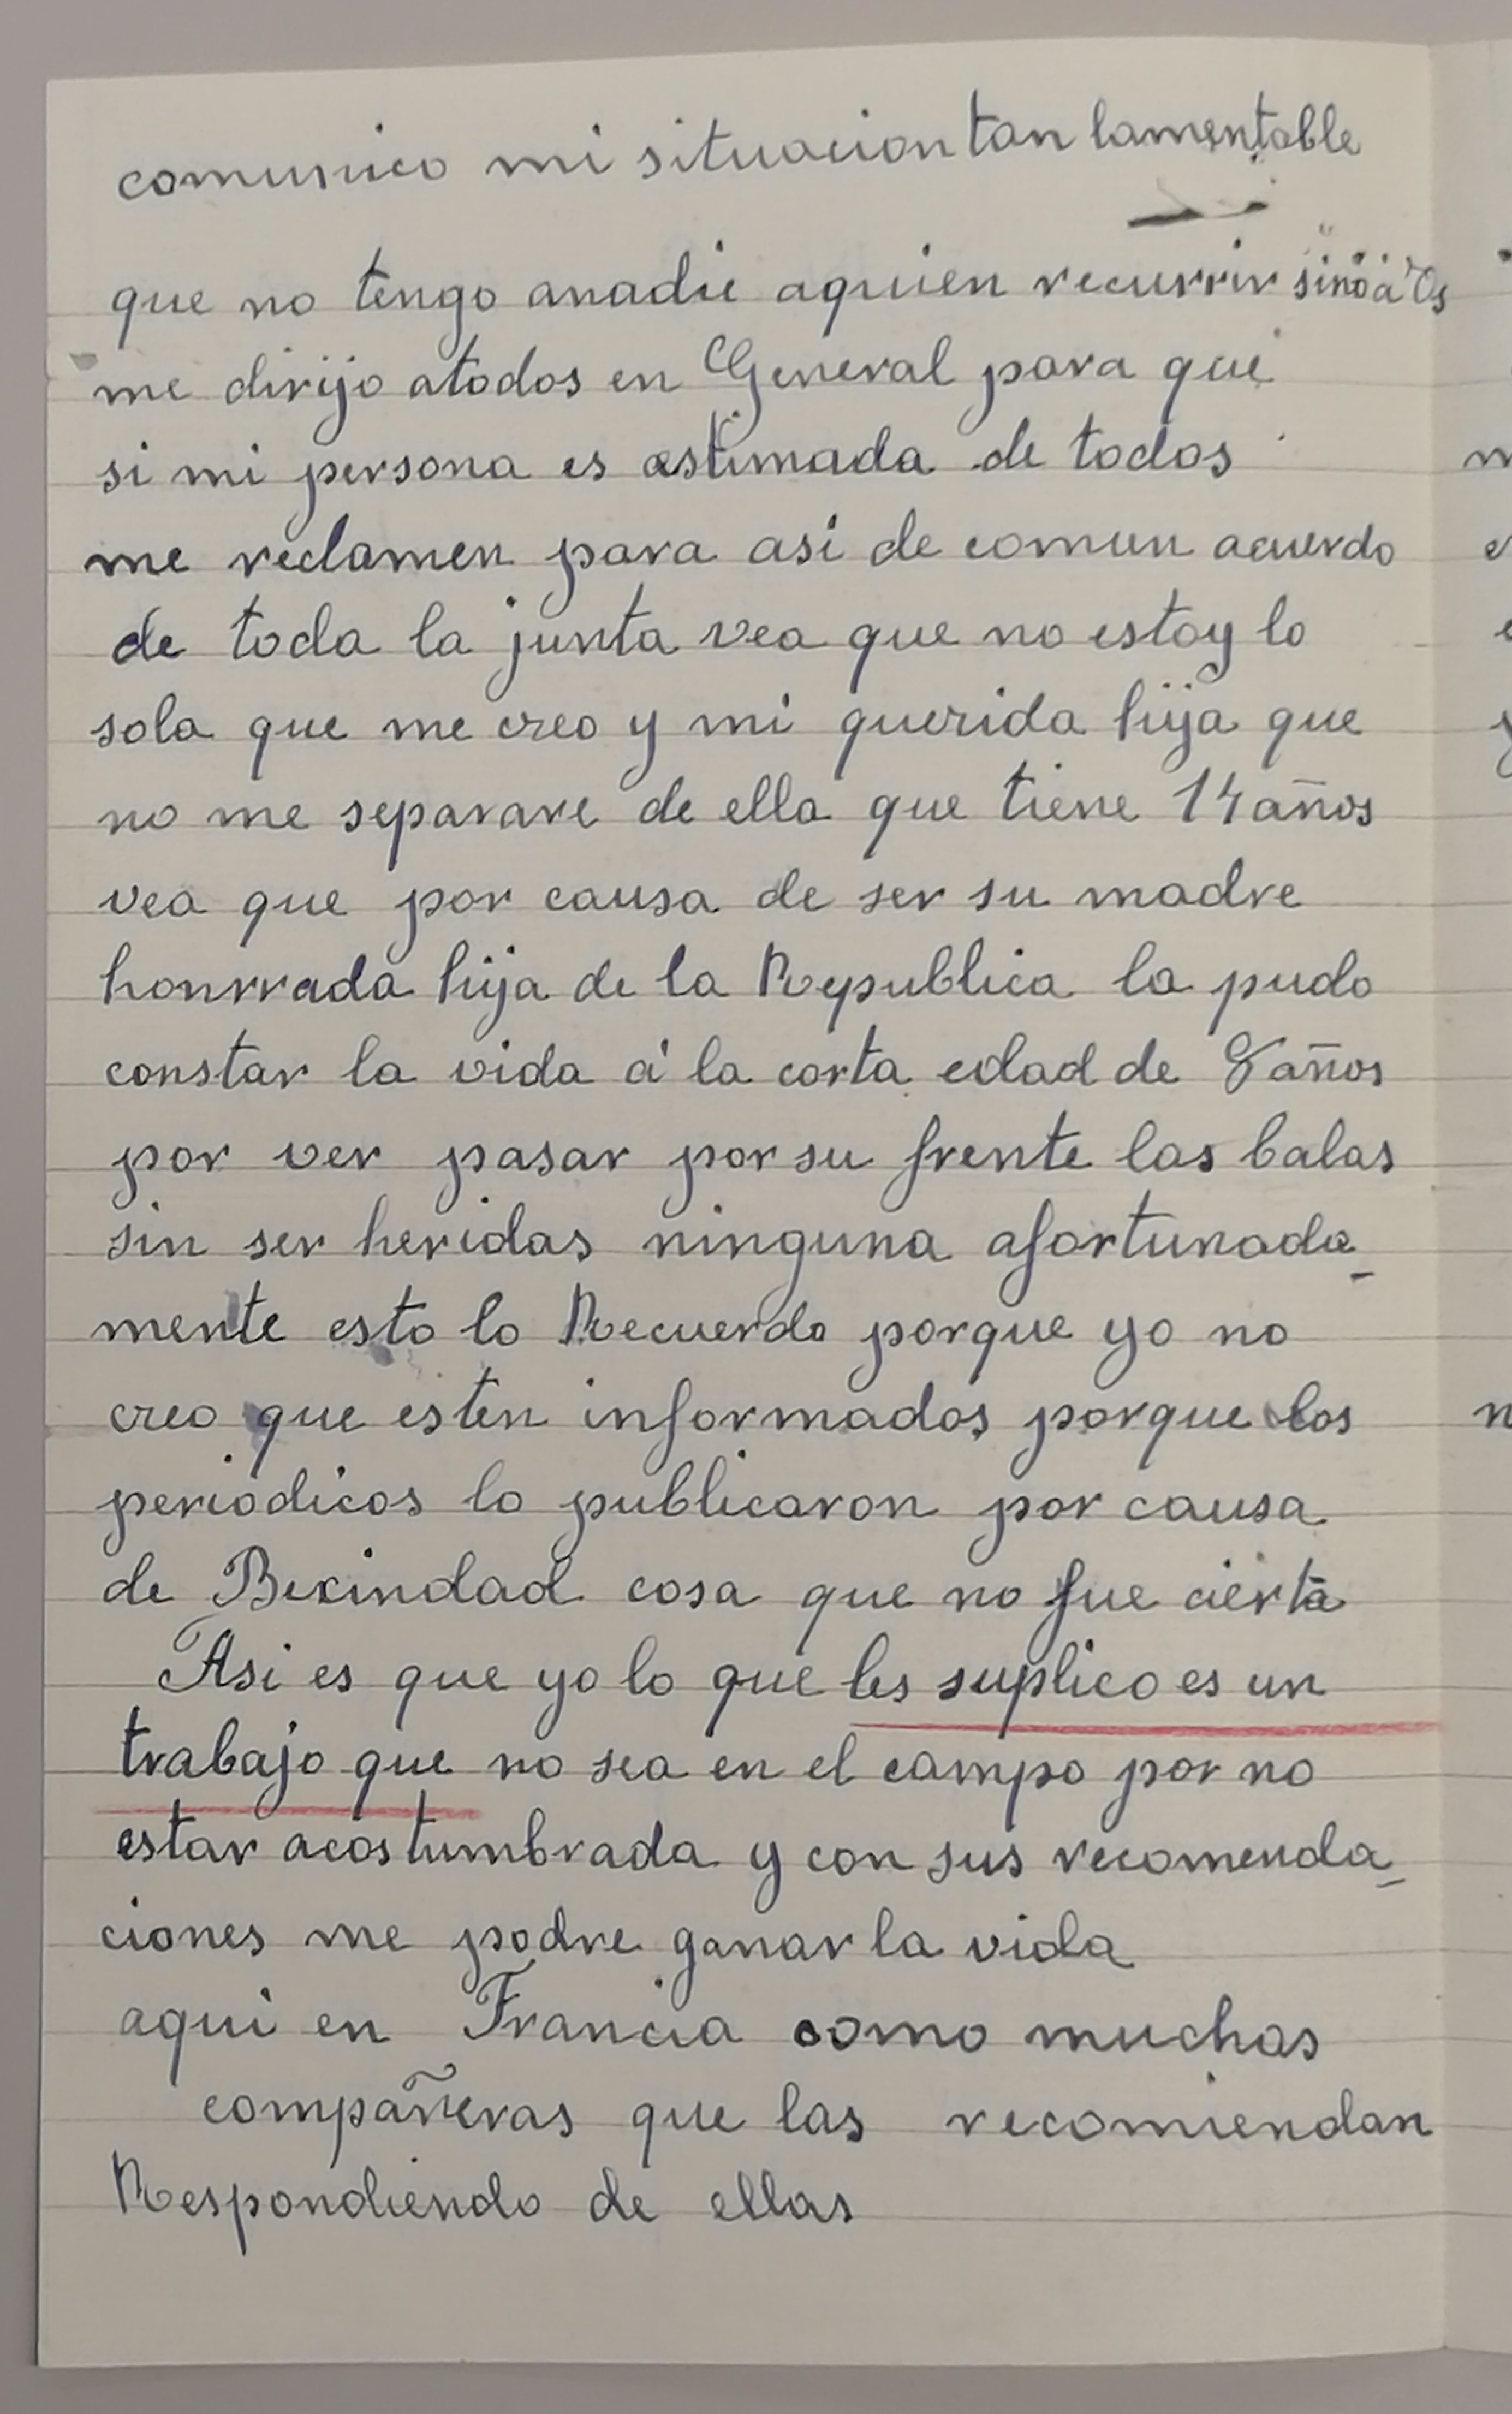 comunico mi situacion tan lamentable
que no tengo anadie aquien recurrir sino a Vs
me dirijo atodos en General para que
si mi persona es estimada de todos
me reclamen para asi de comun acuerdo
de toda la junta vea que no estoy lo
sola que me creo y mi querida hija que
no me separare de ella que tiene 14 años
vea que por causa de ser su madre
honrrada hija de la Republica la pudo
constar la vida á la corta edad de 8 años
por ver pasar por su frente las balas
sin ser heridas ninguna afortunada-
mente esto lo Recuerdo porque yo no
creo que esten informados porque los
periodicos lo publicaron por causa
de Becindad cosa que no fue cierta
Asi es que yo lo que les suplico es un
trabajo que no sea en el campo por no
estar acostumbrada y con sus recomenda-
ciones me podre ganar la vida
aqui en Francia como muchas
compañeras que las recomiendan
Respondiendo de ellas